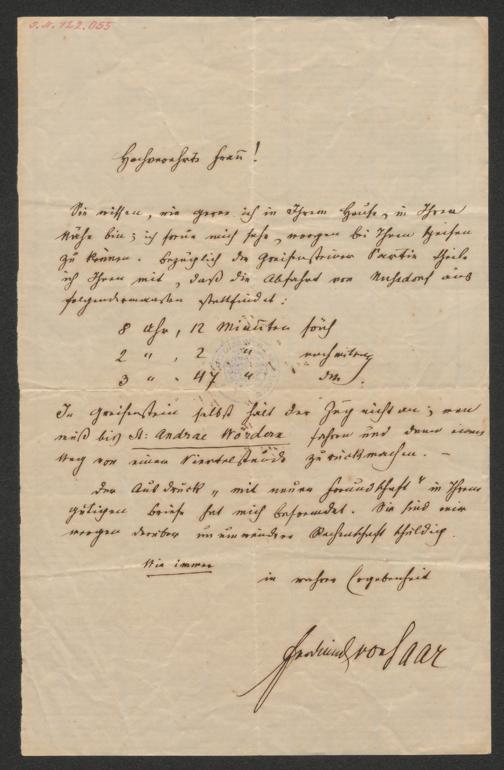 J.N. 122.055
Hochverehrte Frau!
Sie wissen, wie gerne ich in Ihrem Hause, in Ihrer
Nähe bin; ich freue mich sehr, morgen bei Ihnen speisen
zu können. Bezüglich der Greifensteiner Partie theile
ich Ihnen mit, daß die Abfahrt von Nußdorf aus
folgendermaßen stattfindet:
8 Uhr, 12 Minuten früh
2 " , 2 " nachmittag
3 " " 47 " dto
In Greifenstein selbst hält der Zug nicht an; man
muß bis St: Andrae Wördern fahren und dann einen
Weg von einer Viertelstunde zurückmachen. –
Der Ausdruck „mit neuer Freundschaft" in Ihrem
gütigen Briefe hat mich befremdet. Sie sind mir
morgen darüber Rechenschaft schuldig.
Wie immer
in wahrer Ergebenheit
Ferdinand von Saar